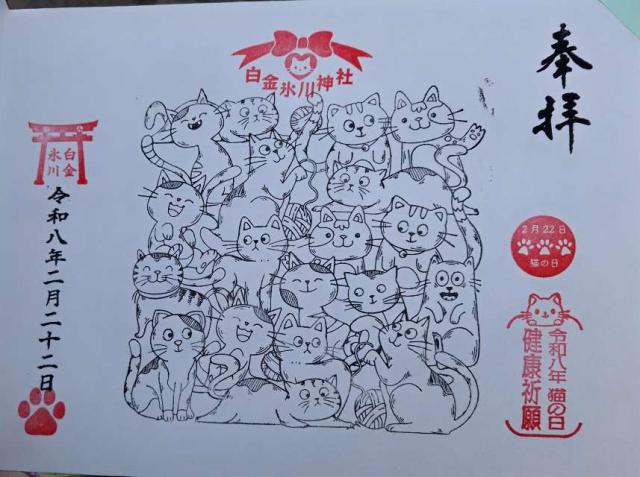 奉拝
白金氷川神社
2月22日
猫の日
令和八年 猫の日
健康祈願
白金
氷川
令和八年二月二十二日